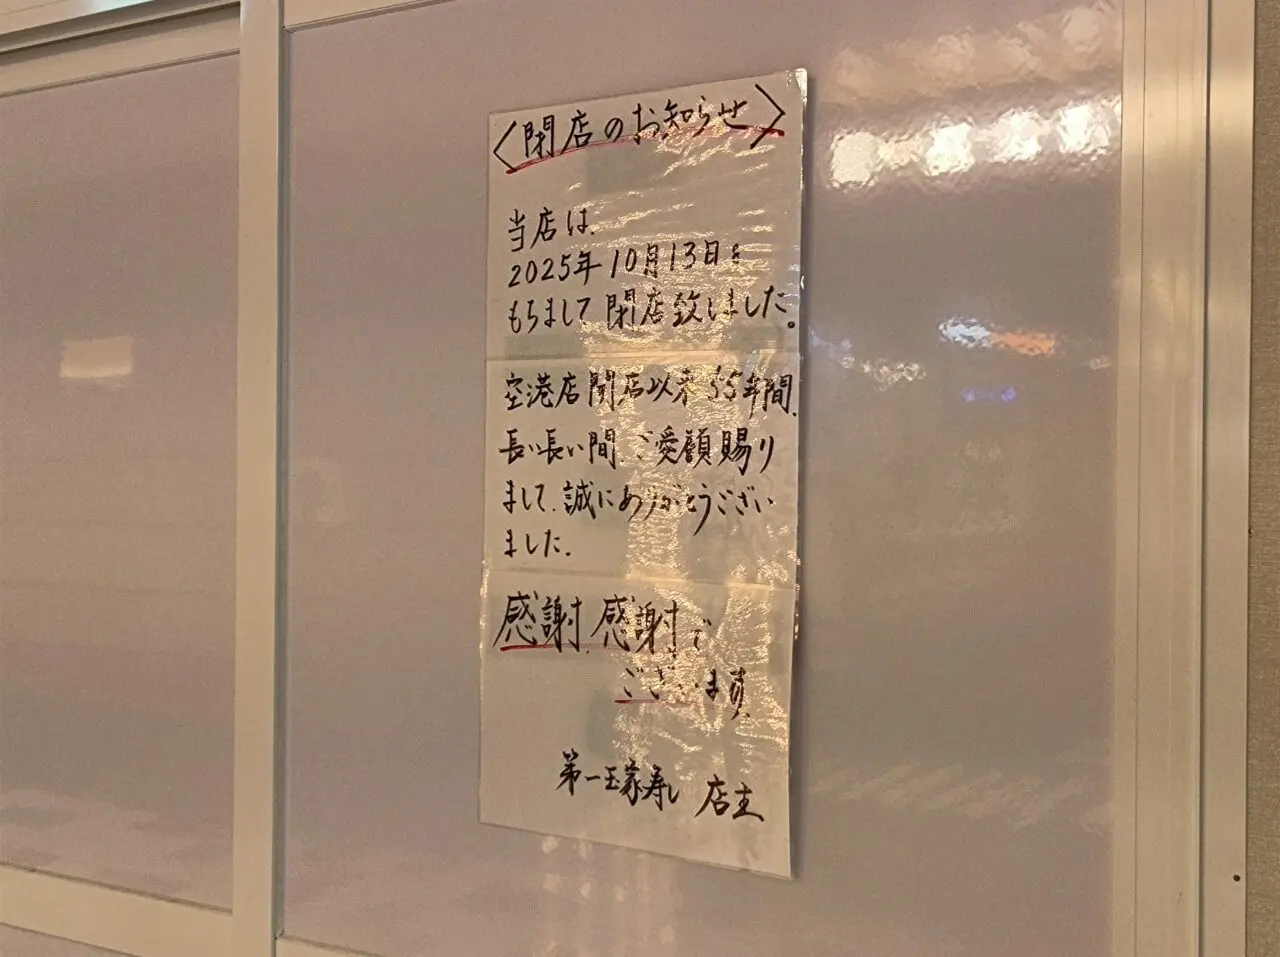 〈閉店のお知らせ〉
当店は、
2025年10月13日を
もちまして閉店致しました。
空港店開店以来55年間、
長い長い間、ご愛顧賜り
まして、誠にありがとうござい
ました。
感謝、感謝で
ございます。
第一玉家寿し 店主